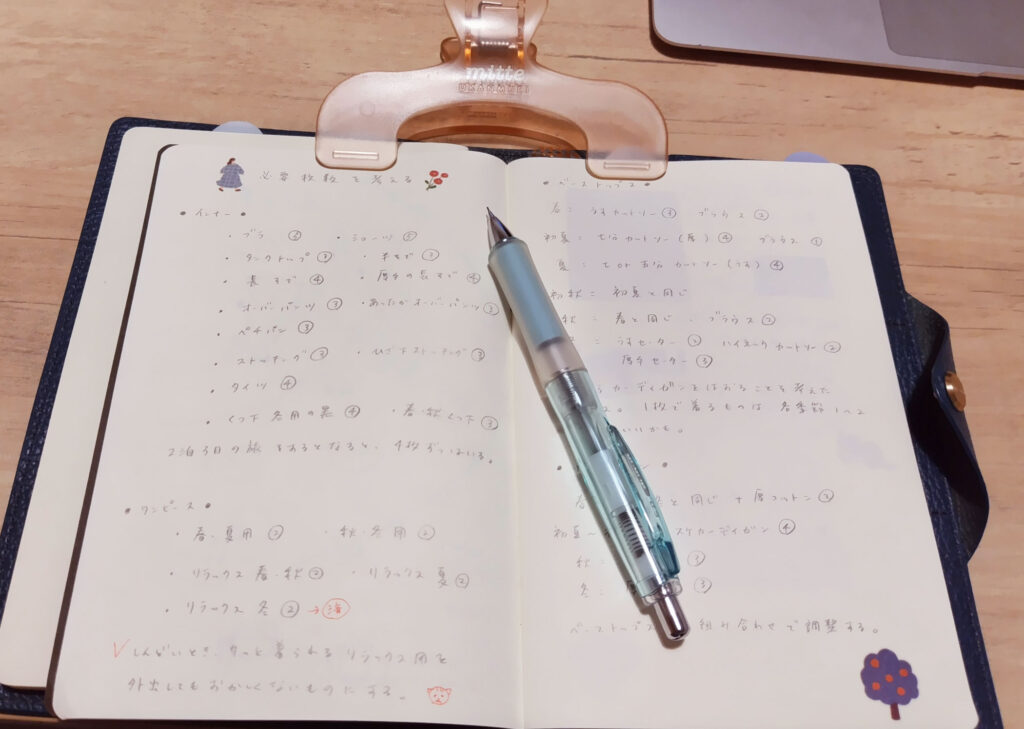 mitte
必要枚数を考える
• インナー •
・ブラ ・ショーツ ⑤
・タンクトップ ・半そで
・長そで ④ ・厚手の長そで ④
・オーバーパンツ ③ ・あったかオーバーパンツ ②
・ペチパン ③
・ストッキング ③ ・ひざ下ストッキング ③
・タイツ ④
・くつ下 冬用の裏 ④ ・春・秋くつ下 ③
2泊3日の旅をするとなると、4枚ずつはいる。
• ワンピース •
・春・夏用 ② ・秋・冬用 ②
・リラックス 春・秋 ② ・リラックス 夏 ②
・リラックス 冬 ② →済
✓しんどいとき、サッと着られるリラックス用を
外出してもおかしくないものにする。
• ベーストップス •
春: うすカットソー ③ ブラウス ②
初夏: 七分カットソー(厚) ④ ブラウス ①
夏: 七or五分カットソー(うす) ④
初秋: 初夏と同じ
秋: 春と同じ ・ブラウス ②
: うすセーター ハイネックカットソー ②
厚手セーター ③
カーディガンをはおることを考えた
。1枚で着るものは各季節1〜2
いいかも。
春 と同じ + 厚コットン ②
初夏〜 スケカーディガン ④
秋: ③
冬: ③
ベーストップス 組み合わせで調整する。